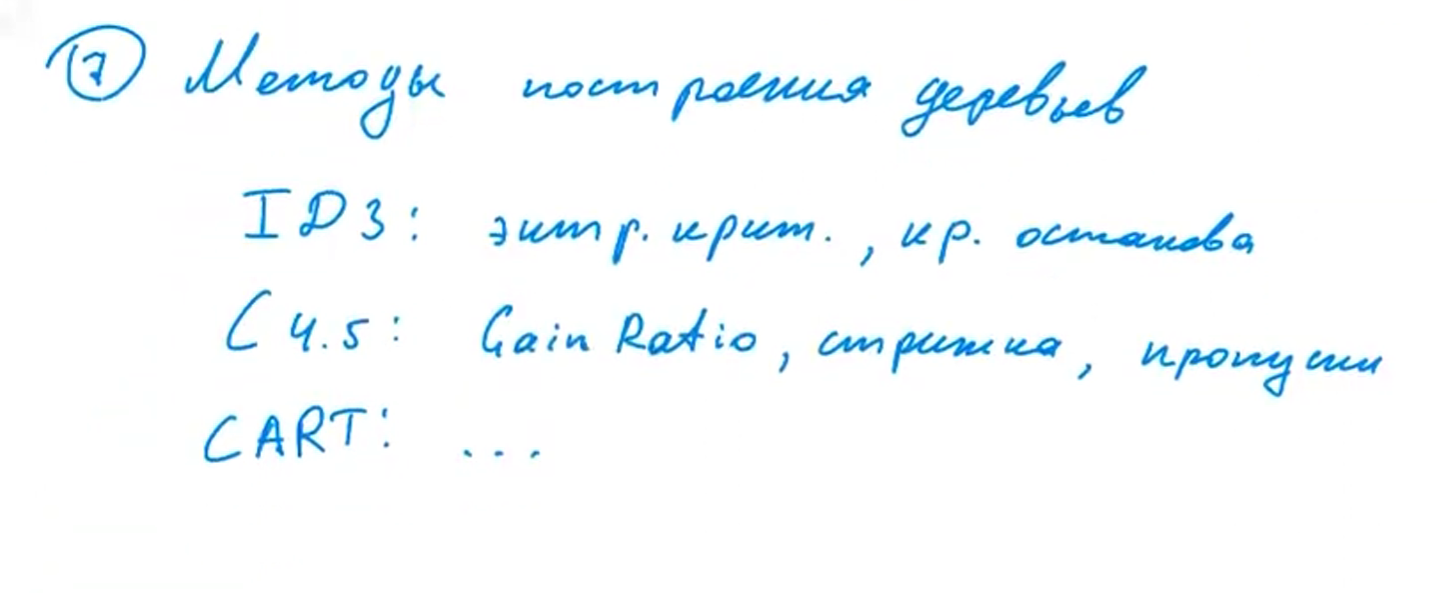 7 Методы построения деревьев
ID3: энтр. крит., кр. останова
C4.5: Gain Ratio, стрижка, пропуски
CART: ...